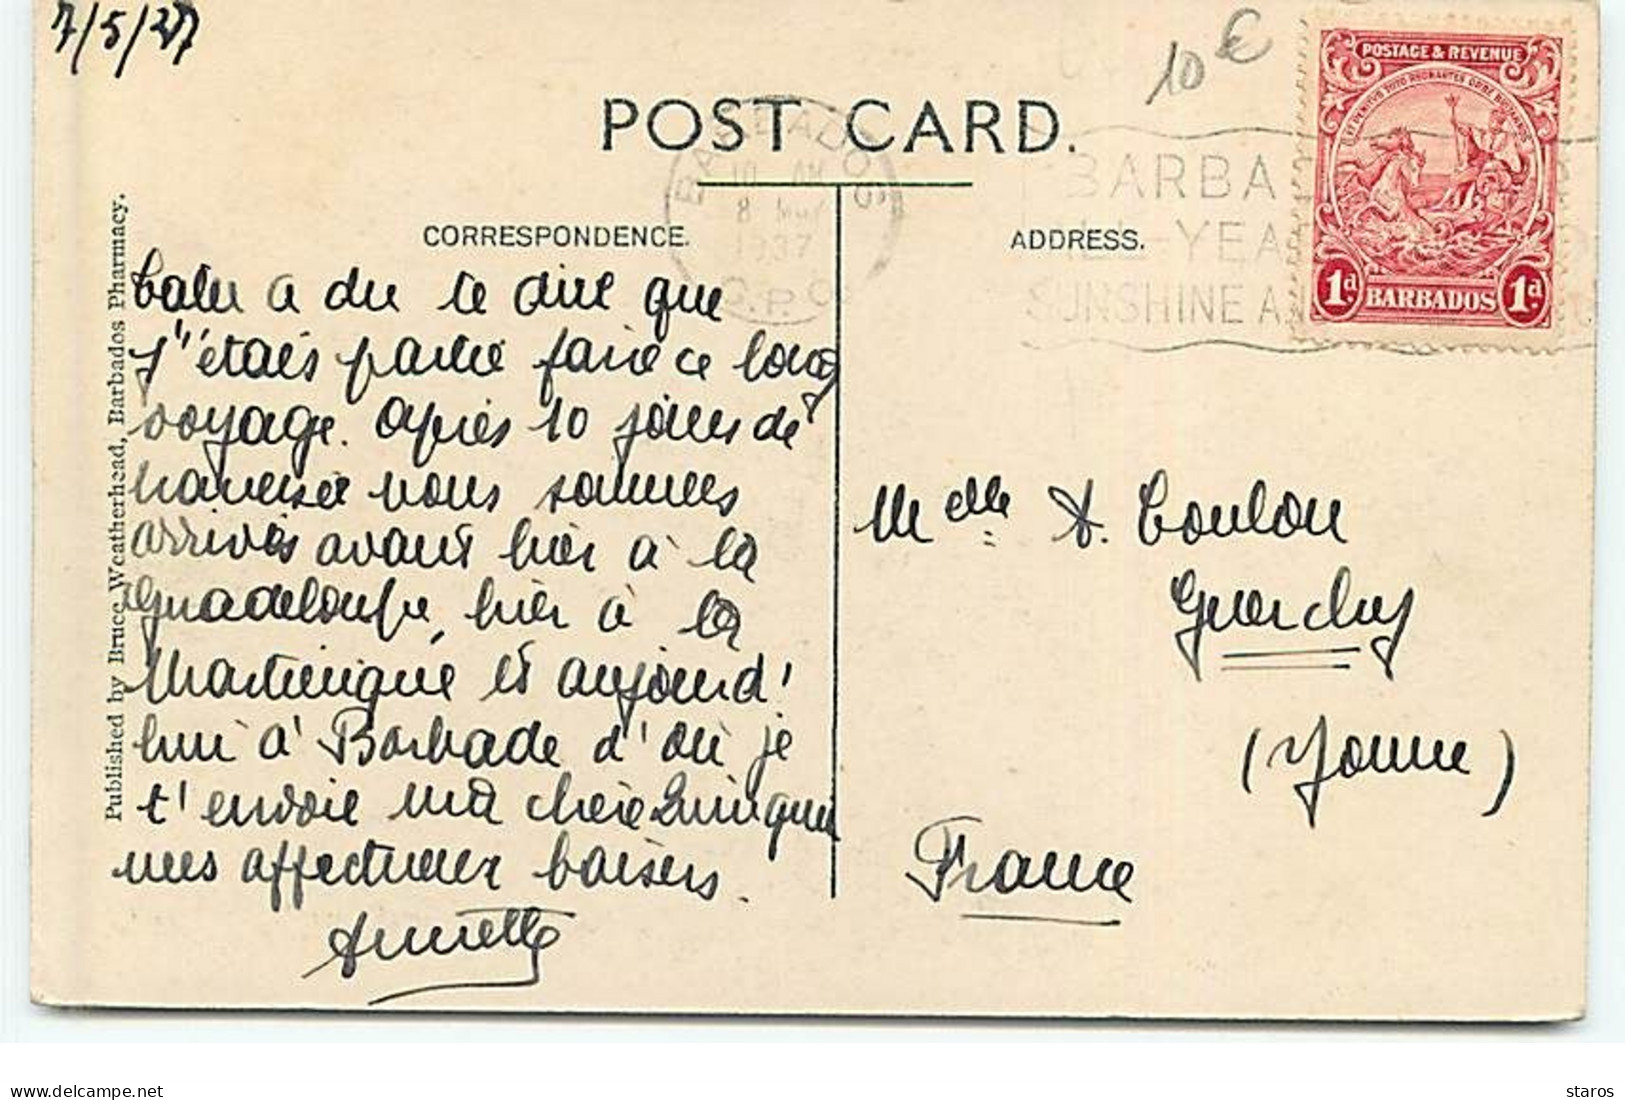 7/5/27
10 €
POST CARD.
POSTAGE & REVENUE
1d BARBADOS 1d
BARBADOS
10 AM
8 MAY
1937
G.P.O.
BARBA
YEA
SUNSHINE A
CORRESPONDENCE.
ADDRESS.
Published by Bruce Weatherhead, Barbados Pharmacy.
a du te dire que
j'étais partie faire ce long
voyage. Après 10 jours de
traversée nous sommes
arrivés avant hier à la
Guadeloupe, hier à la
Martinique et aujourd'
hui à Barbade d'où je
t'envoie ma chère
mes affectueux baisers.
Annette
Melle A. Coulon
Guerchy
(Yonne)
France
delcampe.net
staros